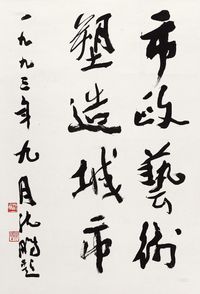 市政藝術
塑造城市
一九九三年九月沈鹏題